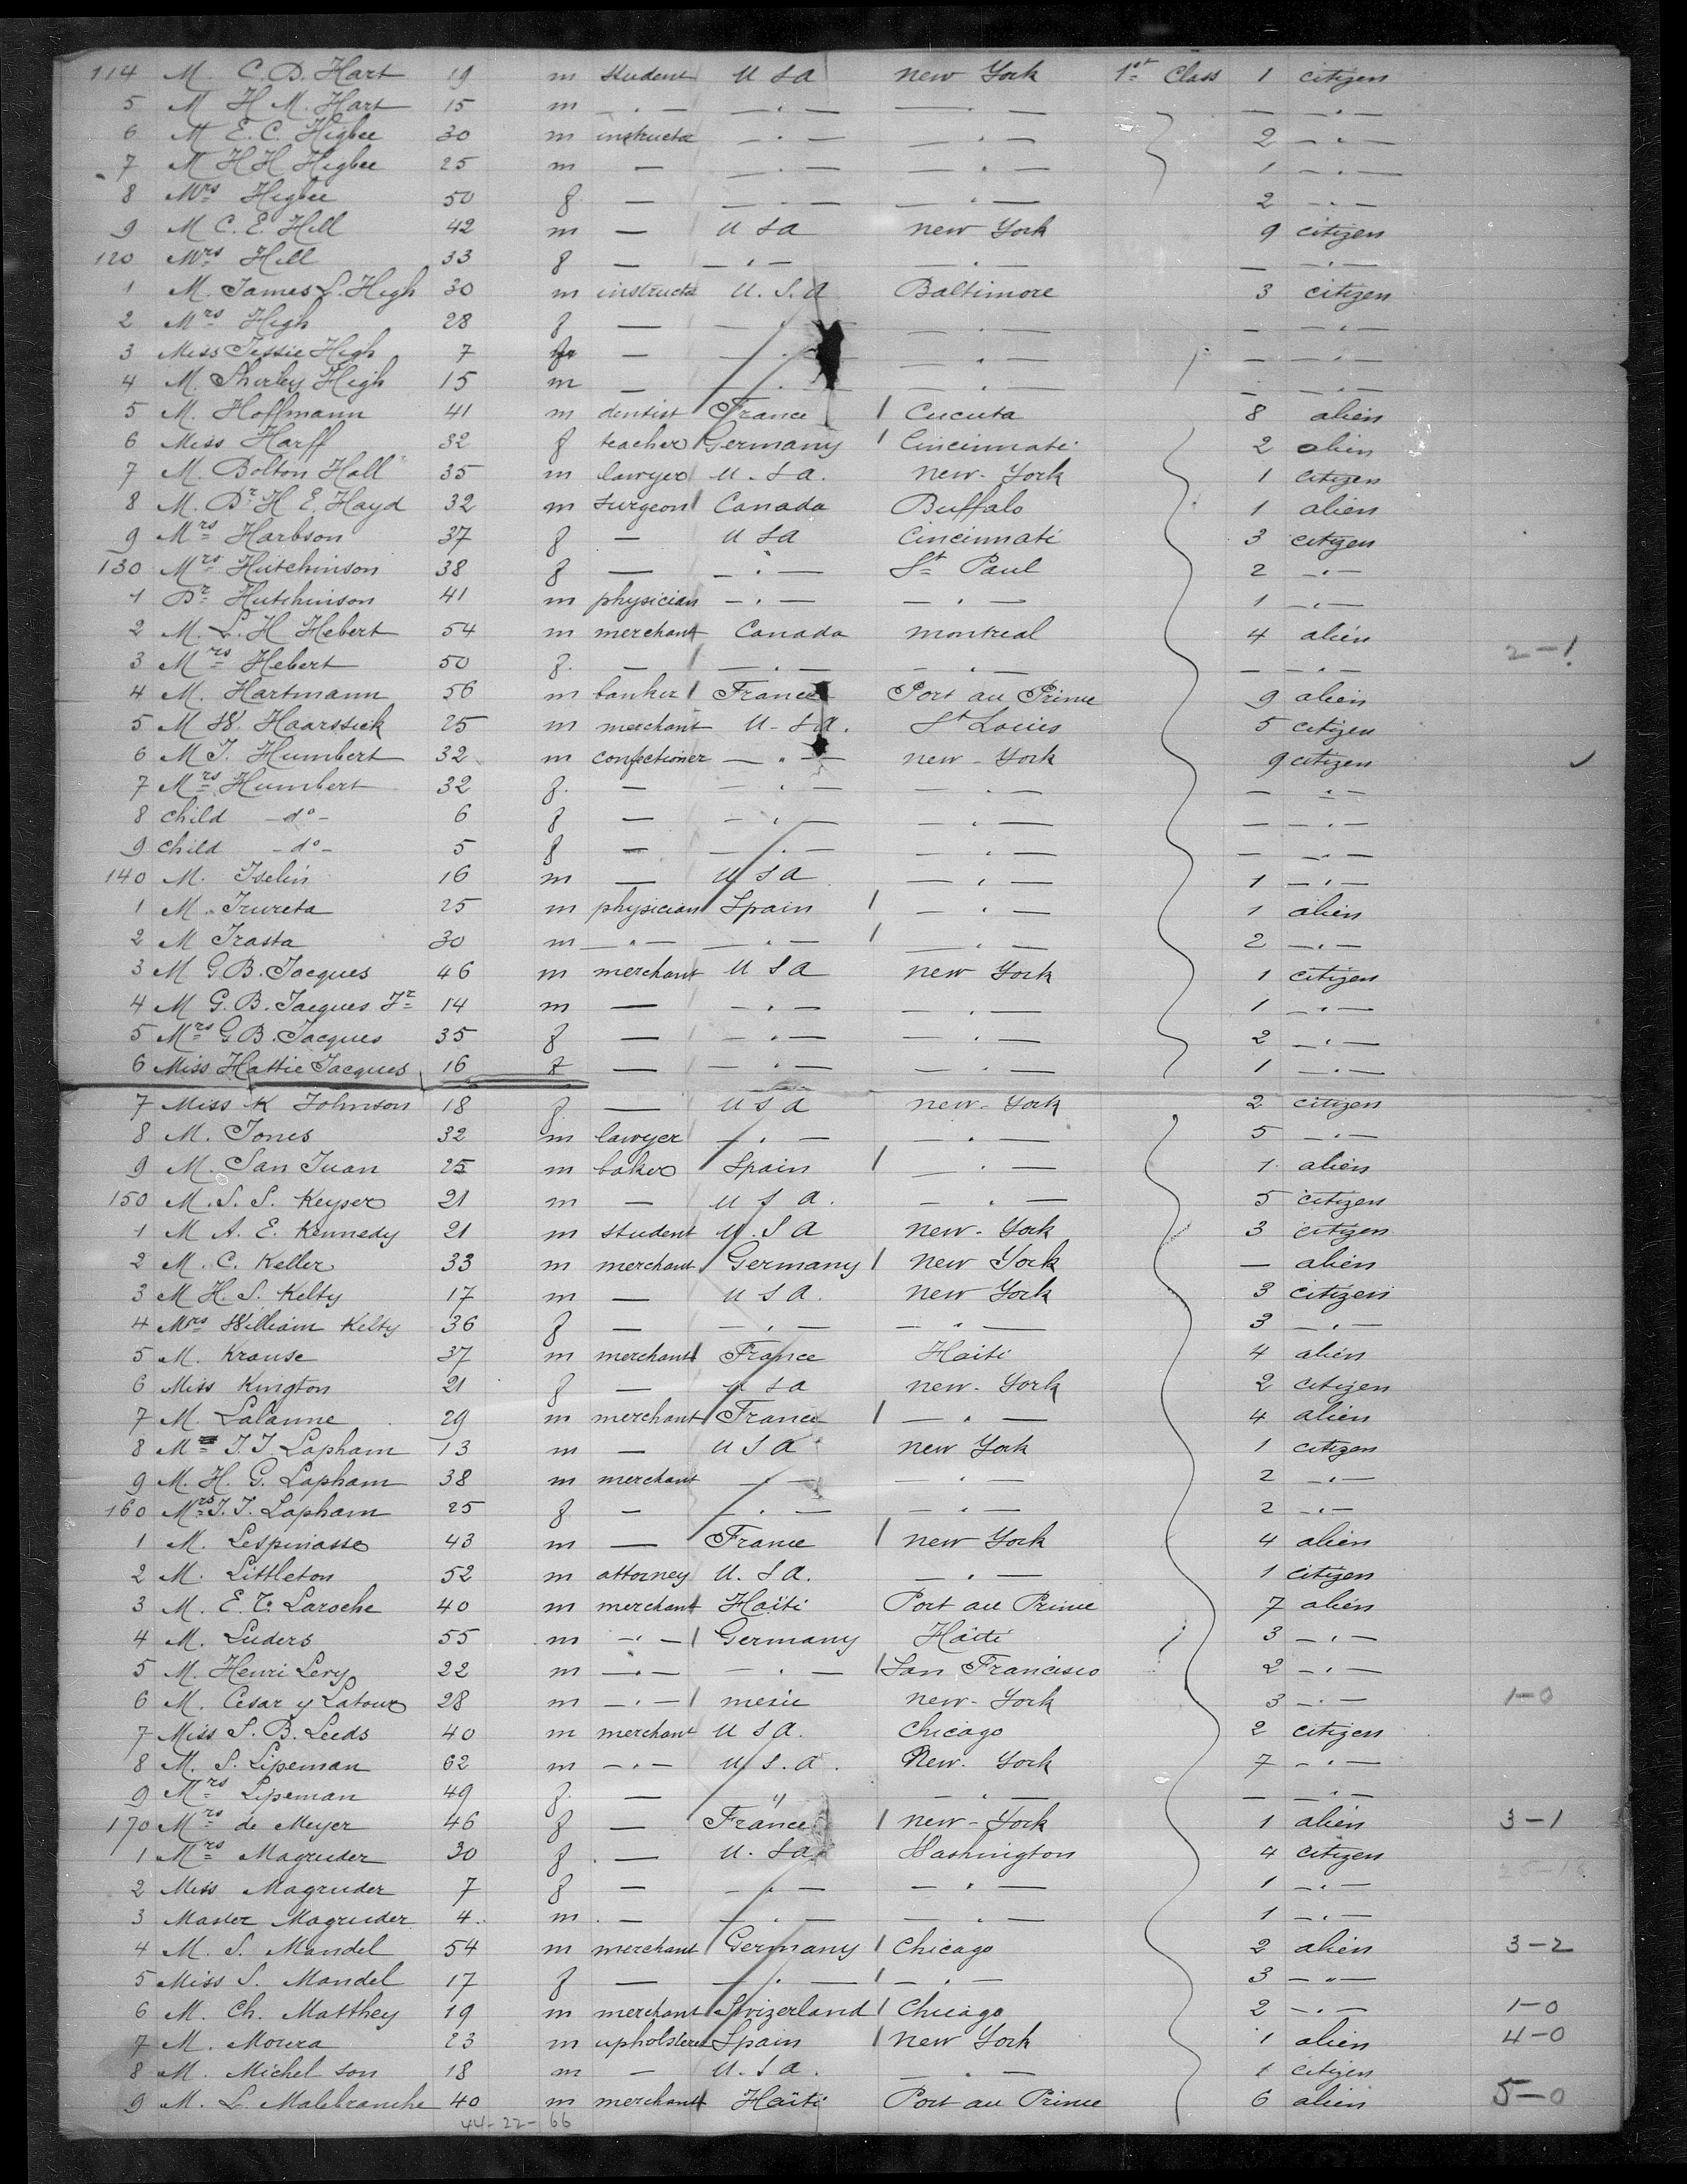 114 M. C. D. Hart 19 m student U S A New York 1st Class 1 citizen
5 M H M. Hart 15 m — . — — . — — . — — — . —
6 M E. C. Higbee 30 m instructor — . — — . — 2 — . —
7 M H H Higbee 25 m — — . — — . — 1 — . —
8 Mrs Higbee 50 f. — — . — — . — 2 — . —
9 M C. E. Hill 42 m — U S A New York 9 citizen
120 Mrs Hill 33 f — — . — — . — — — . —
1 M. James S. High 30 m instructor U. S. A Baltimore 3 citizen
2 Mrs High 28 f — — . — — . — — — . —
3 Miss Jessie High 7 f — — . — — . — — — . —
4 M. Shirley High 15 m — — . — — . — — — . —
5 M. Hoffmann 41 m dentist France Cucuta 8 alien
6 Miss Harff 32 f teacher Germany Cincinnati 2 alien
7 M. Bolton Hall 35 m lawyer U. S A. New-York 1 citizen
8 M. Dr H E. Hayd 32 m surgeon Canada Buffalo 1 alien
9 Mrs Harbson 37 f — U S A Cincinnati 3 citizen
130 Mrs Hutchinson 38 f — — . — St Paul 2 — . —
1 Dr Hutchinson 41 m physician — . — — . — 1 — . —
2 M. L. H Hebert 54 m merchant Canada Montreal 4 alien
3 Mrs Hebert 50 f. — — . — — . — — — . — 2-1
4 M. Hartmann 56 m banker France Port au Prince 9 alien
5 M W. Haarstick 25 m merchant U-S A. St Louis 5 citizen
6 M J. Humbert 32 m confectioner — . — New-York 9 citizen
7 Mrs Humbert 32 f. — — . — — . — — — . —
8 child -do- 6 f — — . — — . — — — . —
9 child -do- 5 f — — . — — . — — — . —
140 M. Iselin 16 m — U S A — . — 1 — . —
1 M. Irureta 25 m physician Spain — . — 1 alien
2 M Irasta 30 m — . — — . — — . — 2 — . —
3 M G B. Jacques 46 m merchant U S A New York 1 citizen
4 M G. B. Jacques Jr 14 m — — . — — . — 1 — . —
5 Mrs G B. Jacques 35 f — — . — — . — 2 — . —
6 Miss Hattie Jacques 16 f — — . — — . — 1 — . —
7 Miss K Johnson 18 f — U S A New-York 2 citizen
8 M. Jones 32 m lawyer — . — — . — 5 — . —
9 M. San Juan 25 m baker Spain — . — 1 alien
150 M. S. S. Keyser 21 m — U S A. — . — 5 citizen
1 M A. E. Kennedy 21 m student U. S A New-York 3 citizen
2 M. C. Keller 33 m merchant Germany New York — alien
3 M H. S. Kelty 17 m — U S A. New York 3 citizen
4 Mrs William Kelty 36 f — — . — — . — 3 — . —
5 M. Krause 37 m merchant France Haiti 4 alien
6 Miss Kington 21 f — U S A New-York 2 citizen
7 M. Lalanne 29 m merchant France — . — 4 alien
8 M J. J. Lapham 13 m — U S A New York 1 citizen
9 M. H. G. Lapham 38 m merchant — . — — . — 2 — . —
160 Mrs J. J. Lapham 25 f — — . — — . — 2 — . —
1 M. Lespinasse 43 m — France New York 4 alien
2 M. Littleton 52 m attorney U. S A. — . — 1 citizen
3 M. E. T. Laroche 40 m merchant Haïti Port au Prince 7 alien
4 M. Luders 55 m — . — Germany Haïti 3 — . —
5 M. Henri Levy 22 m — . — — . — San Francisco 2 — . —
6 M. Cesar y Latour 28 m — . — New-York 3 — . — 1-0
7 Miss S. B. Leeds 40 m merchant U S A. Chicago 2 citizen
8 M. S. Lipeman 62 m — . — U. S. A. New. York 7 — . —
9 Mrs Lipeman 49 f. — " — . — — — . —
170 Mrs de Meyer 46 f — France New-York 1 alien 3-1
1 Mrs Magruder 30 f. — U. S A Washington 4 citizen
2 Miss Magruder 7 f — — . — — . — 1 — . —
3 Master Magruder 4 m. — — . — — . — 1 — . —
4 M. S. Mandel 54 m merchant Germany Chicago 2 alien 3-2
5 Miss S. Mandel 17 f — — . — — . — 3 — " —
6 M. Ch. Matthey 19 m merchant Swizerland Chicago 2 — . — 1-0
7 M. Moura 23 m upholsterer Spain New York 1 alien 4-0
8 M. Michel son 18 m — U. S A. — . — 1 citizen
9 M. L. Malebranche 40 m merchant Haïti Port au Prince 6 alien 5-0
44-22-66